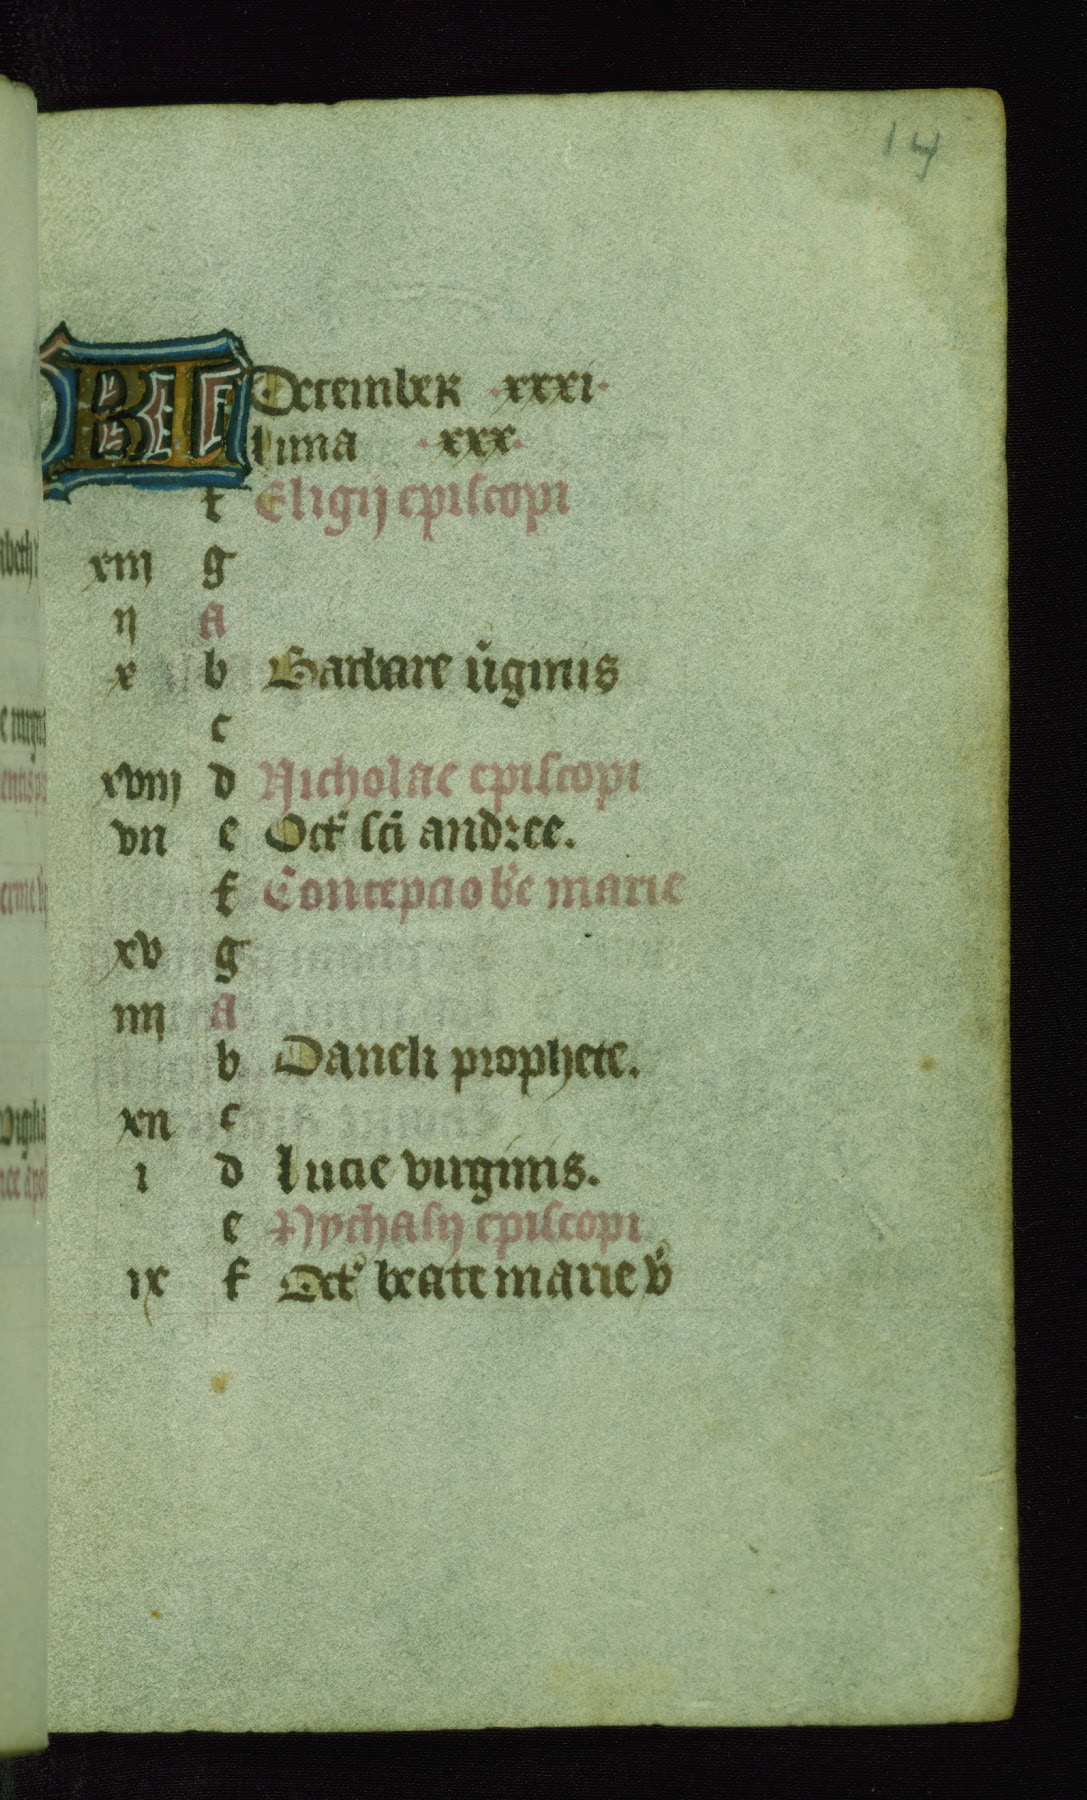 14
KL December xxxi
luna xxx
f Eligij episcopi
xiij g
ij A
x b Barbare v̄ginis
c
xviij d Nicholae episcopi
vij e Oct' sc̄i andree.
f Concepcio b'e marie
xv g
iiij A
b Danieli prophete.
xij c
i d lucie virginis.
e Nychasij episcopi
ix f Oct' beate marie v̄